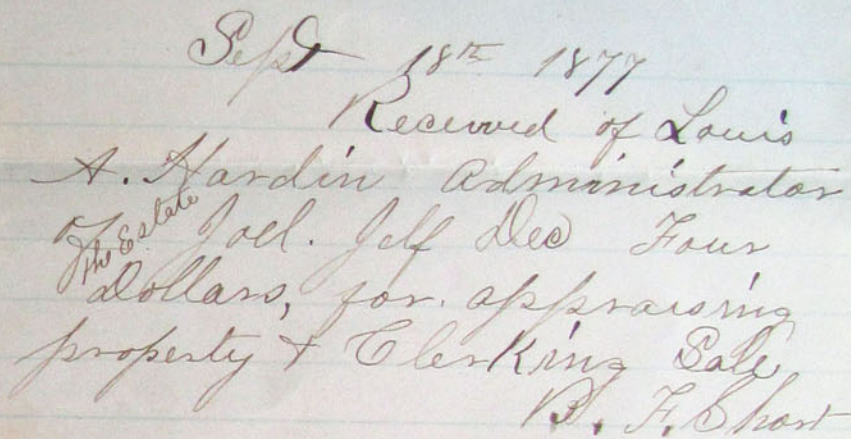 Sept 18th 1877
Received of Louis
A. Hardin Administrator
of the Estate Joel. Jelf Dec Four
Dollars, for. appraising
property & Clerking Sale
B. F. Short